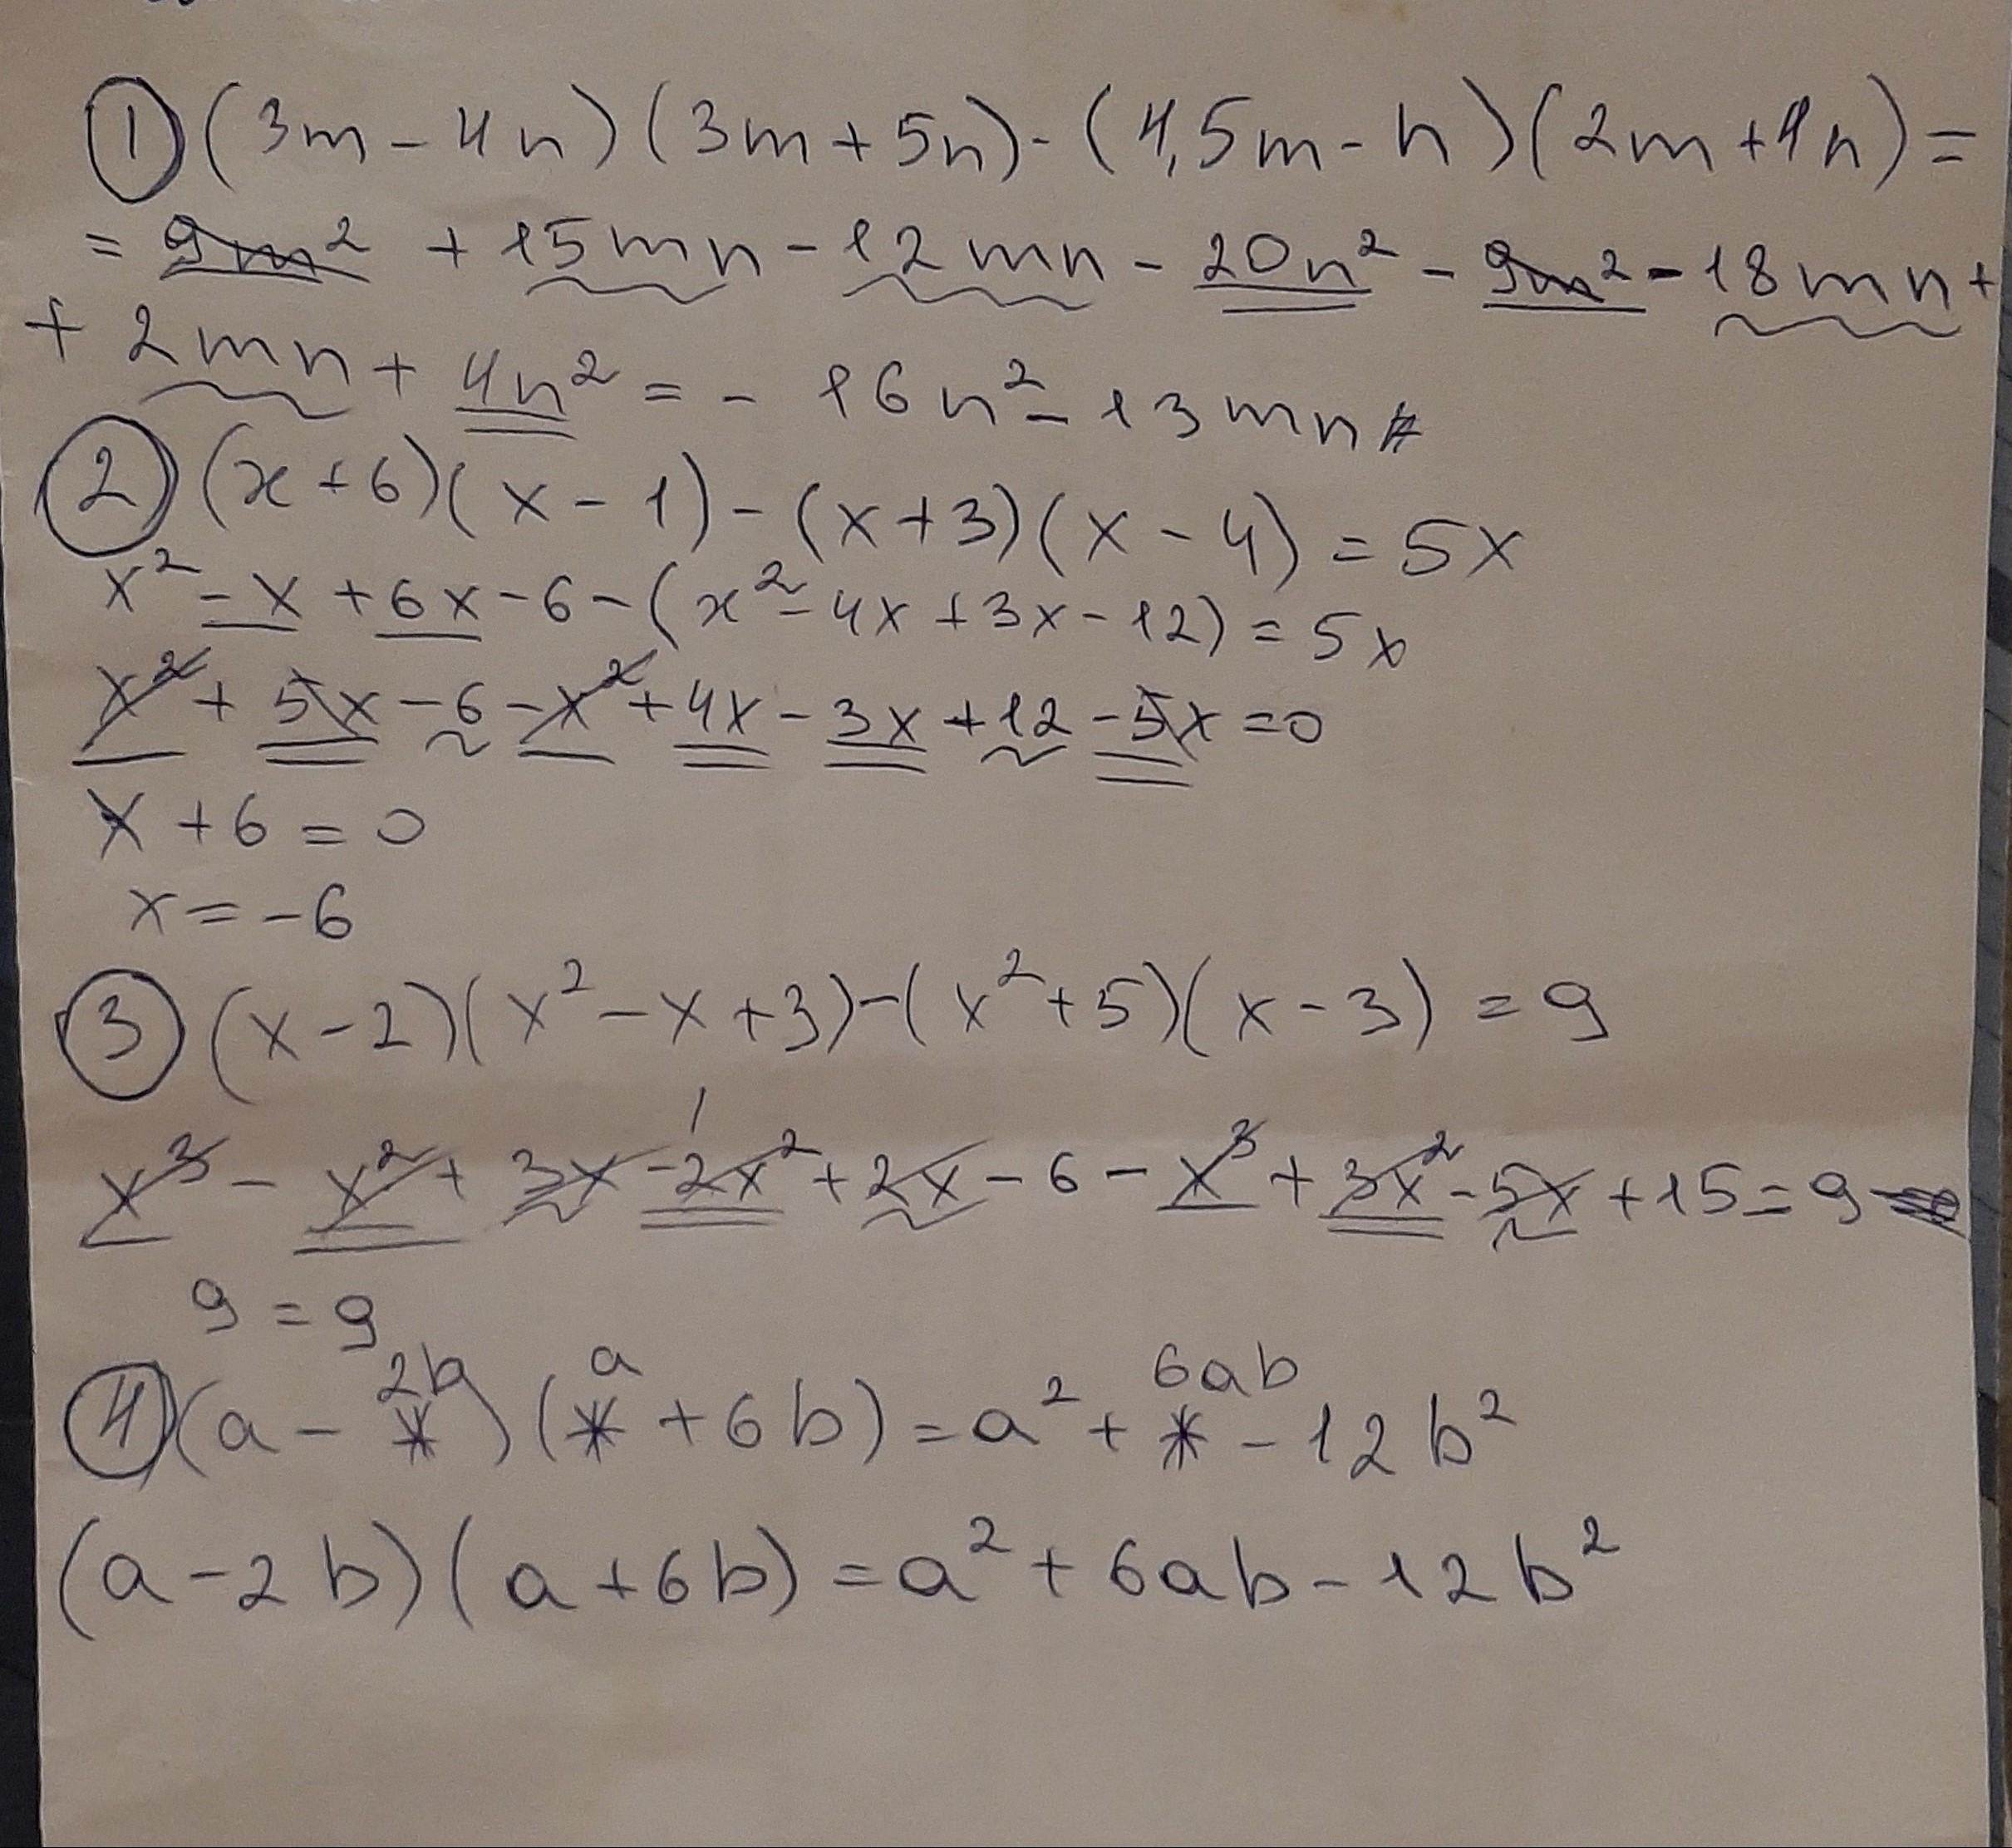 ① (3m - 4n) (3m + 5n) - (4,5m - n) (2m + 4n) =
= 9m² + 15mn - 12mn - 20n² - 9m² - 18mn +
+ 2mn + 4n² = - 16n² - 13mn
② (x + 6) (x - 1) - (x + 3) (x - 4) = 5x
x² - x + 6x - 6 - (x² - 4x + 3x - 12) = 5x
x² + 5x - 6 - x² + 4x - 3x + 12 - 5x = 0
x + 6 = 0
x = -6
③ (x - 2) (x² - x + 3) - (x² + 5) (x - 3) = 9
x³ - x² + 3x - 2x² + 2x - 6 - x³ + 3x² - 5x + 15 = 9
9 = 9
2b a 6ab
④ (a - *) (* + 6b) = a² + * - 12b²
(a - 2b) (a + 6b) = a² + 6ab - 12b²